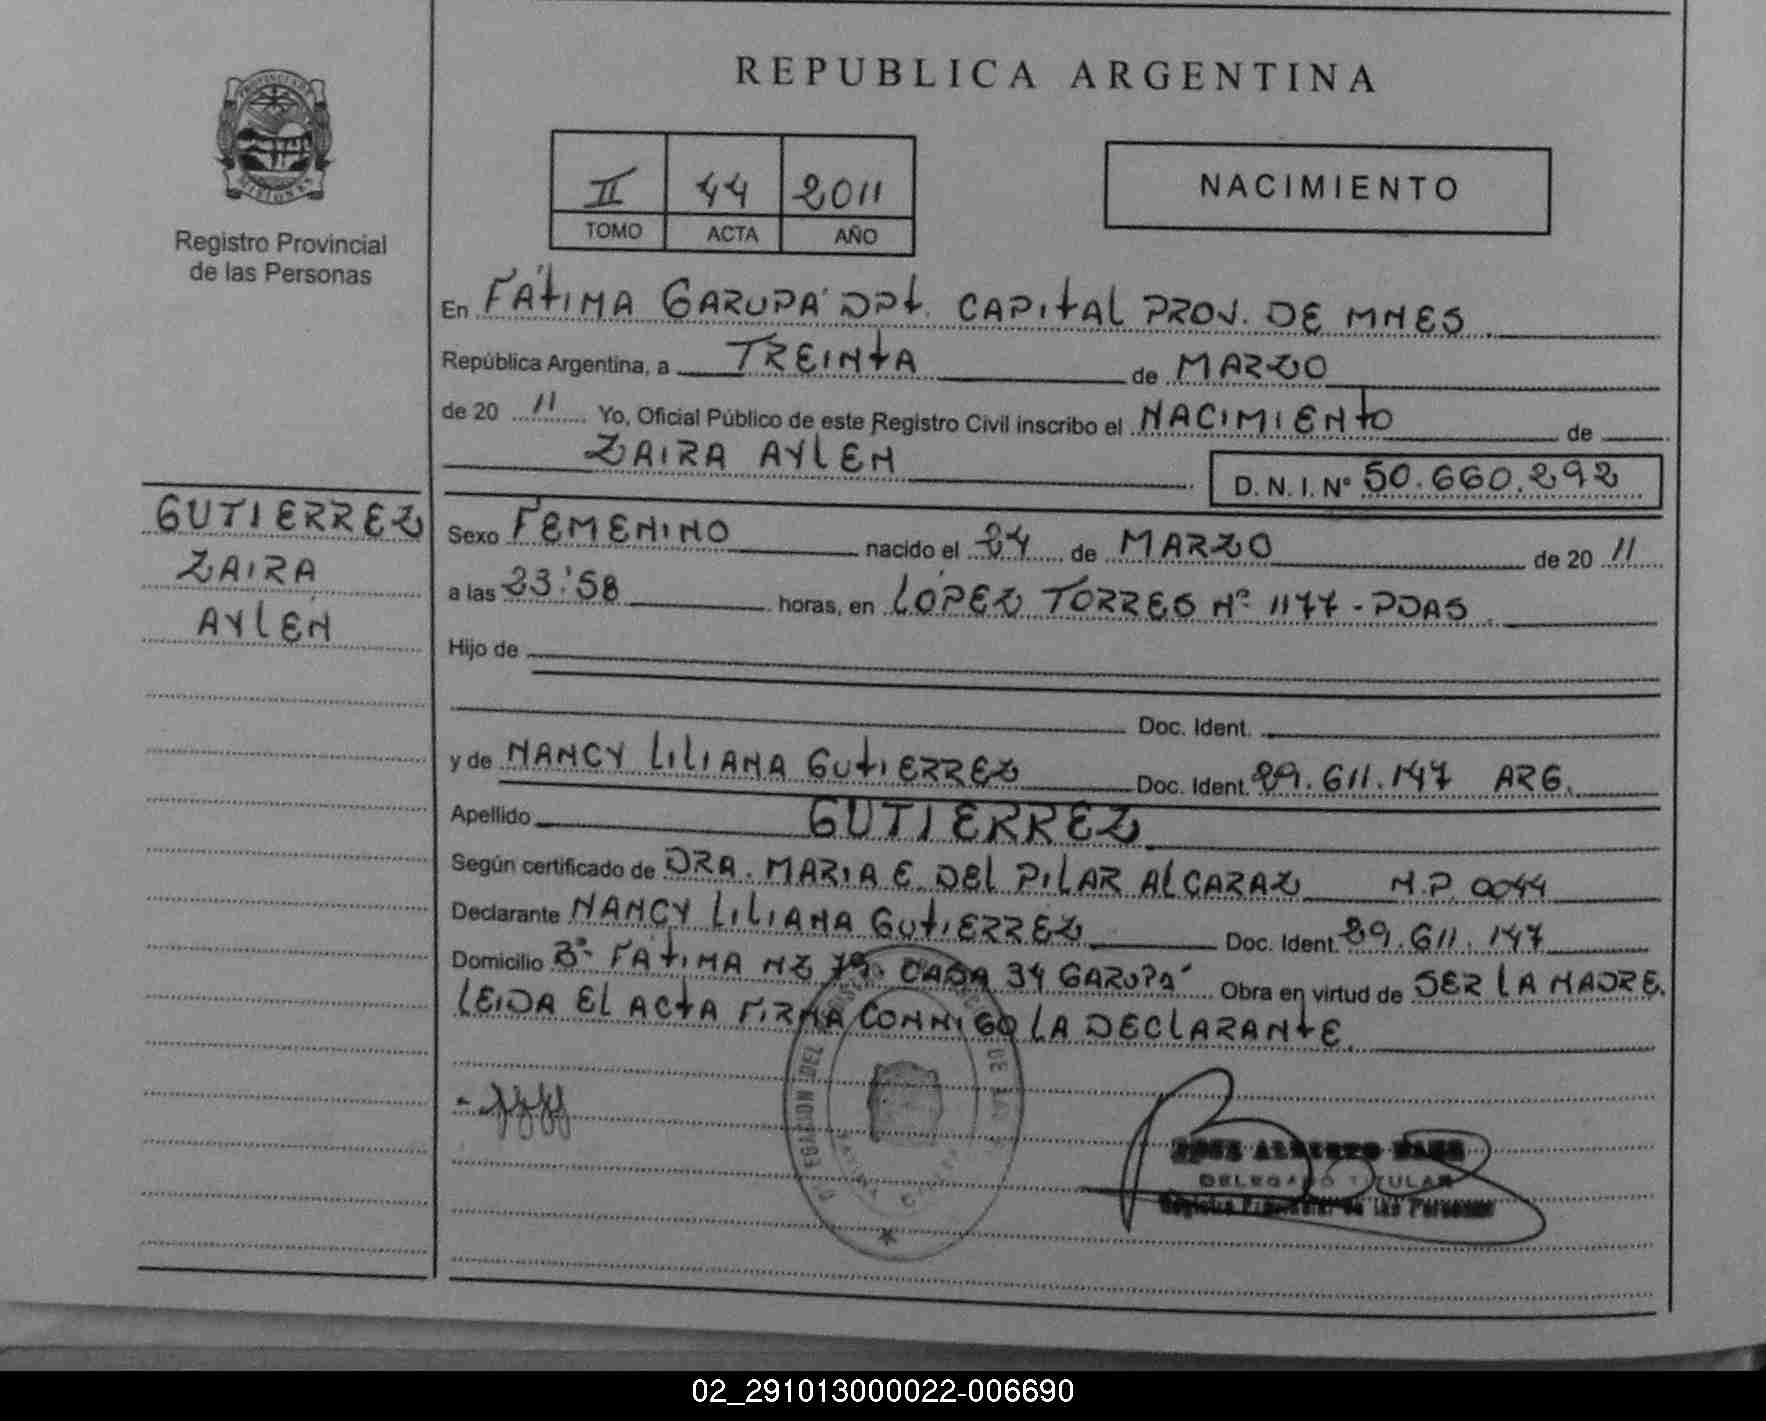 REPUBLICA ARGENTINA
PROVINCIA DE
MISIONES
Registro Provincial
de las Personas
II 44 2011
TOMO ACTA AÑO
NACIMIENTO
En FÁTIMA GARUPÁ DPT. CAPITAL PROV. DE MNES
República Argentina, a TREINTA de MARZO
de 20 11 Yo, Oficial Público de este Registro Civil inscribo el NACIMIENTO de
ZAIRA AYLEN
D. N. I. Nº 50.660.292
GUTIERREZ
ZAIRA
AYLEN
Sexo FEMENINO nacido el 24 de MARZO de 20 11
a las 23:58 horas, en LÓPEZ TORRES Nº 1177 - PDAS
Hijo de
Doc. Ident.
y de NANCY LILIANA GUTIERREZ Doc. Ident. 29.611.147 ARG.
Apellido GUTIERREZ
Según certificado de DRA. MARIA E. DEL PILAR ALCARAZ M.P. 0044
Declarante NANCY LILIANA GUTIERREZ Doc. Ident. 29.611.147
Domicilio Bº FÁTIMA MZ 79 CASA 34 GARUPÁ Obra en virtud de SER LA MADRE.
LEIDA EL ACTA FIRMA CONMIGO LA DECLARANTE.
DELEGACION DEL
DE LAS
JOSE ALBERTO
DELEGADO TITULAR
Registro Provincial de las Personas
02_291013000022-006690